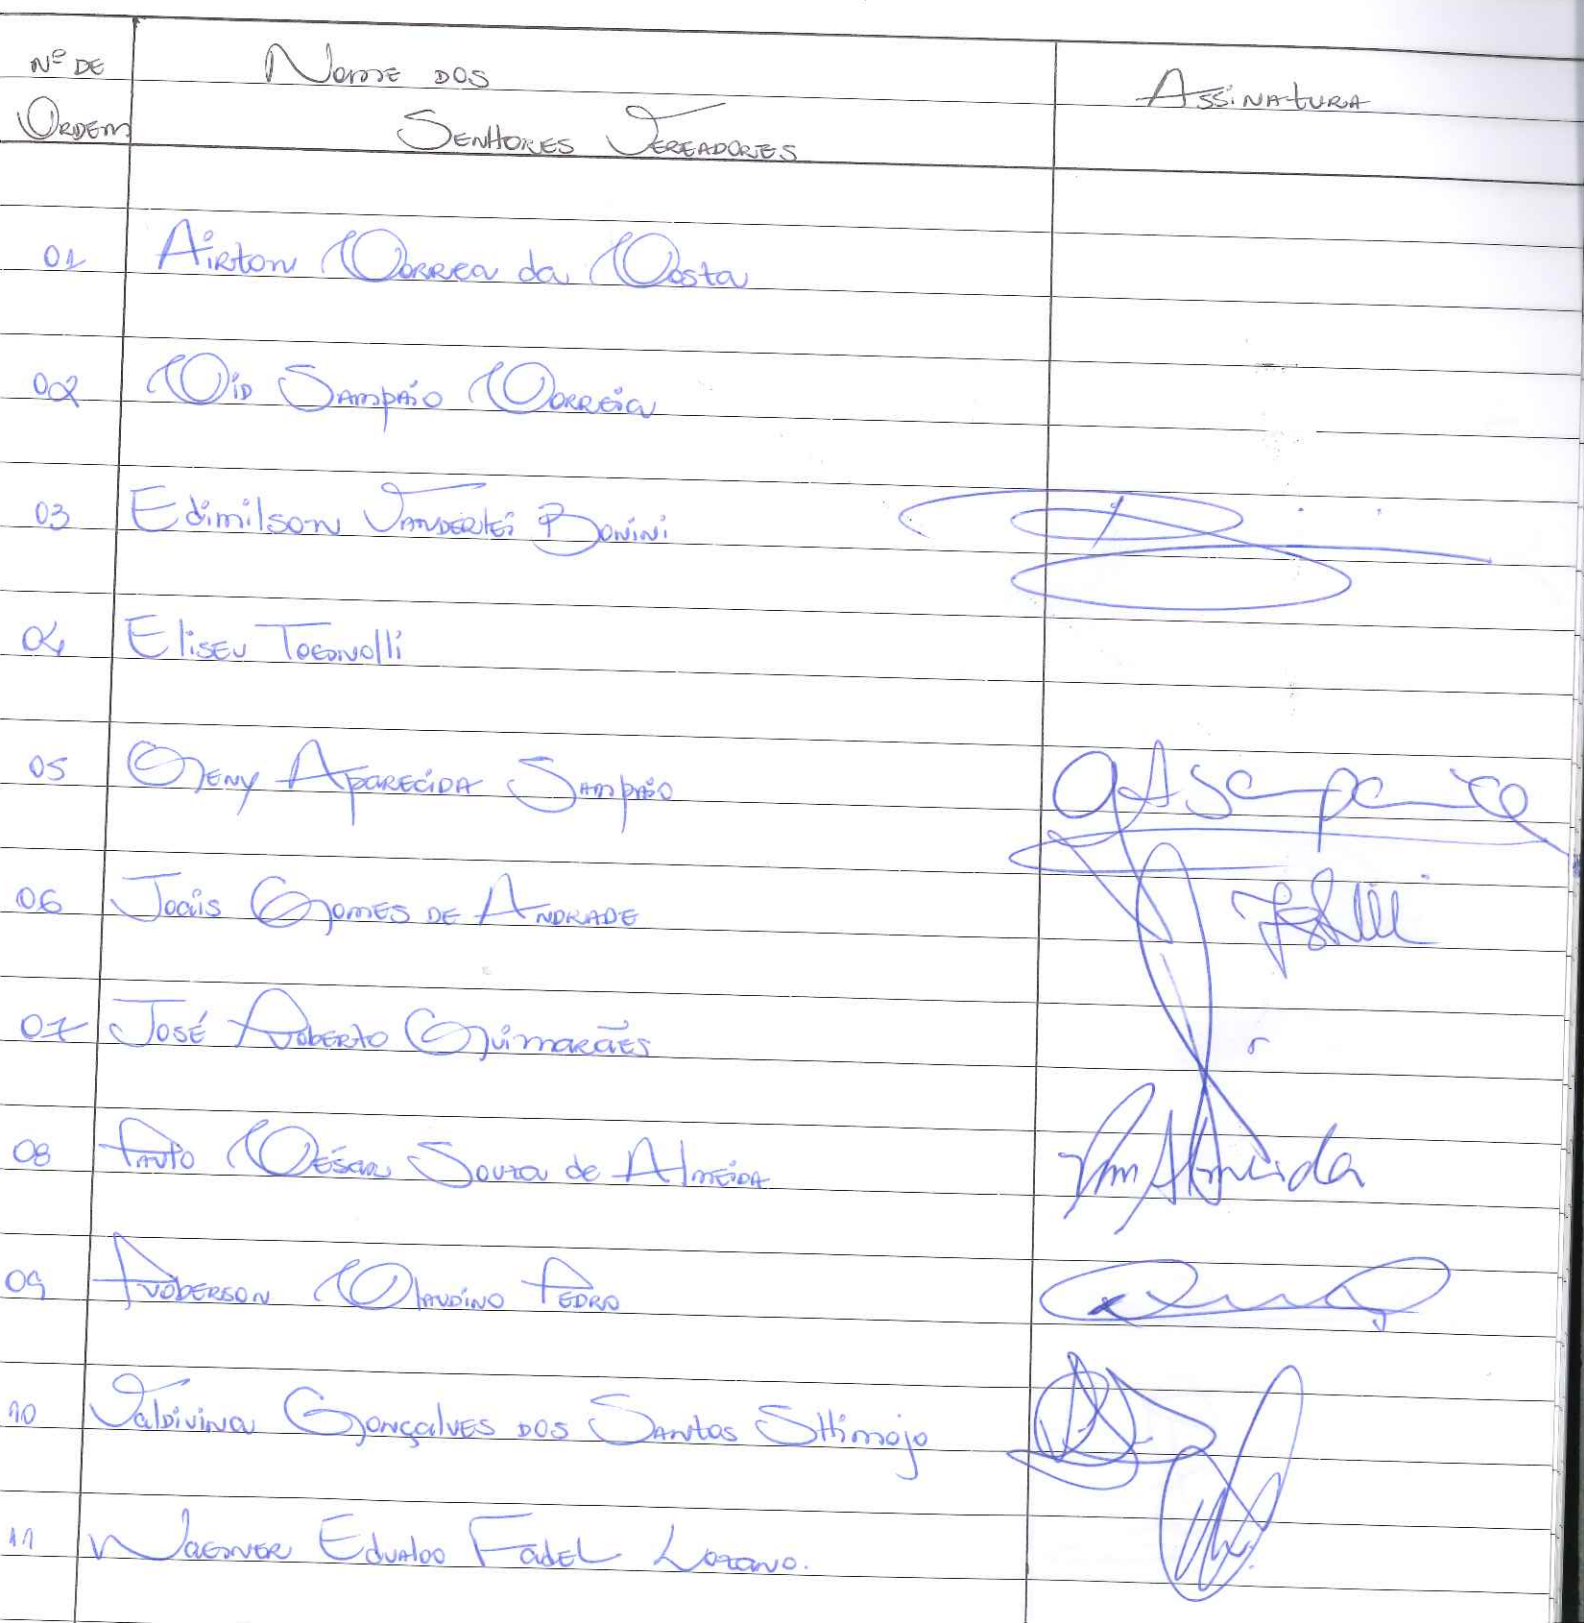 Nº DE
ORDEM
Nome DOS
SENHORES VEREADORES
ASSINATURA
01 Airton Correa da Costa
02 Cid Sampaio Correia
03 Edimilson Vanderlei Bonini
04 Eliseu
05 Geny Aparecida Sampaio GASampaio
06 Joãis Gomes de Andrade
07 José Roberto Guimarães
08 Paulo César Souza de Almeida Almeida
09 Roberson Claudino Pedro
10 Valdivina Gonçalves dos Santos Shimojo
11 Wagner Edualdo Fadel Lozano.